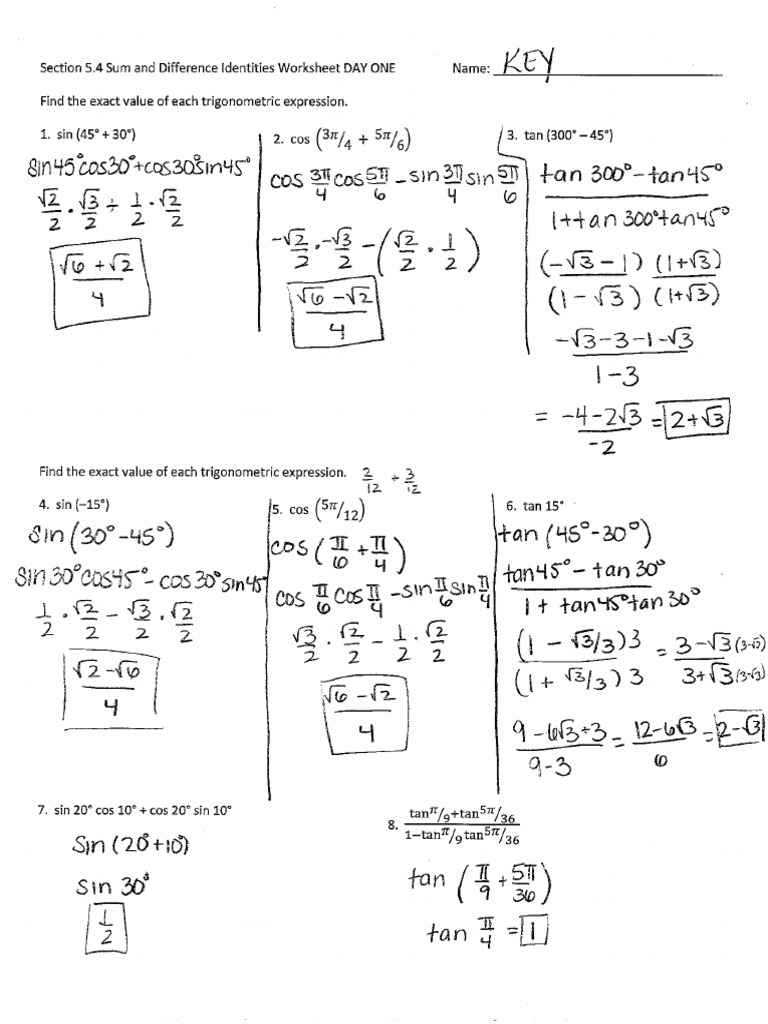 Section 5.4 Sum and Difference Identities Worksheet DAY ONE Name: KEY
Find the exact value of each trigonometric expression.
1. sin (45° + 30°)
sin45°cos30°+cos30°sin45°
√2/2 · √3/2 + 1/2 · √2/2
(√6 + √2)/4
2. cos (3π/4 + 5π/6)
cos 3π/4 cos 5π/6 - sin 3π/4 sin 5π/6
-√2/2 · -√3/2 - (√2/2 · 1/2)
(√6 - √2)/4
3. tan (300° – 45°)
(tan 300° - tan 45°)/(1 + tan 300° tan 45°)
(-√3 - 1) (1+√3)/(1 - √3) (1+√3)
(-√3 - 3 - 1 - √3)/(1 - 3)
= (-4 - 2√3)/-2 = 2+√3
Find the exact value of each trigonometric expression. 2/12 + 3/12
4. sin (–15°)
sin (30° - 45°)
sin 30° cos 45° - cos 30° sin 45°
1/2 · √2/2 - √3/2 · √2/2
(√2 - √6)/4
5. cos (5π/12)
cos (π/6 + π/4)
cos π/6 cos π/4 - sin π/6 sin π/4
√3/2 · √2/2 - 1/2 · √2/2
(√6 - √2)/4
6. tan 15°
tan (45° - 30°)
(tan 45° - tan 30°)/(1 + tan 45° tan 30°)
(1 - √3/3) 3/(1 + √3/3) 3 = 3 - √3 (3-√3)/3 + √3 (3-√3)
(9 - 6√3 + 3)/(9 - 3) = (12 - 6√3)/6 = 2 - √3
7. sin 20° cos 10° + cos 20° sin 10°
sin (20° + 10°)
sin 30°
1/2
8. (tan π/9 + tan 5π/36)/(1 − tan π/9 tan 5π/36)
tan (π/9 + 5π/36)
tan π/4 = 1